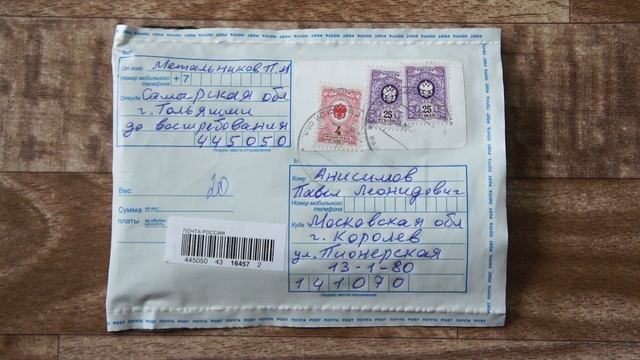 От кого Метальников П.М
Номер мобильного телефона +7
Откуда Самарская обл
г. Тольятти
до востребования
445050
Индекс места отправления
25 25
РУБЛЕЙ РУБЛЕЙ
4
Кому Анисимов
Павел Леонидович
Номер мобильного телефона
Куда Московская обл
г. Королев
ул. Пионерская
13-1-80
141070
Индекс места назначения
Вес 20
Сумма за вес
платы
ПОЧТА РОССИИ
445050 43 16457 2
POST ПОЧТА POST ПОЧТА POST ПОЧТА